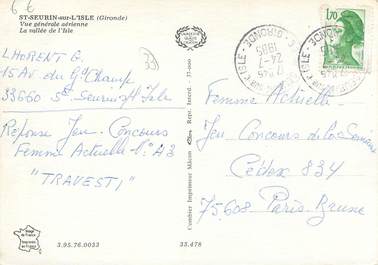 6 €
ST-SEURIN-sur-L'ISLE (Gironde)
Vue générale aérienne
La vallée de l'Isle
LHORENT G.
15 Av. du Gd Champ
33660 St Seurin s/ Isle
33
Réponse Jeu-Concours
Femme Actuelle N° 43
"TRAVESTI"
3.95.76.0033
33.478
Combier Imprimeur Mâcon
Repr. Interd. 33-000
1,70
GIRONDE
24-7
1985
Femme Actuelle
Jeu Concours de la Semaine
Cedex 834
75608 Paris Brune